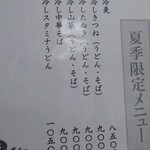 夏季限定メニュー
冷麦
冷しきつね（うどん・そば）
冷したぬき（うどん・そば）
冷し山菜（うどん・そば）
冷し中華そば
冷しスタミナうどん
八五〇
九〇〇
九〇〇
九〇〇
一〇五〇